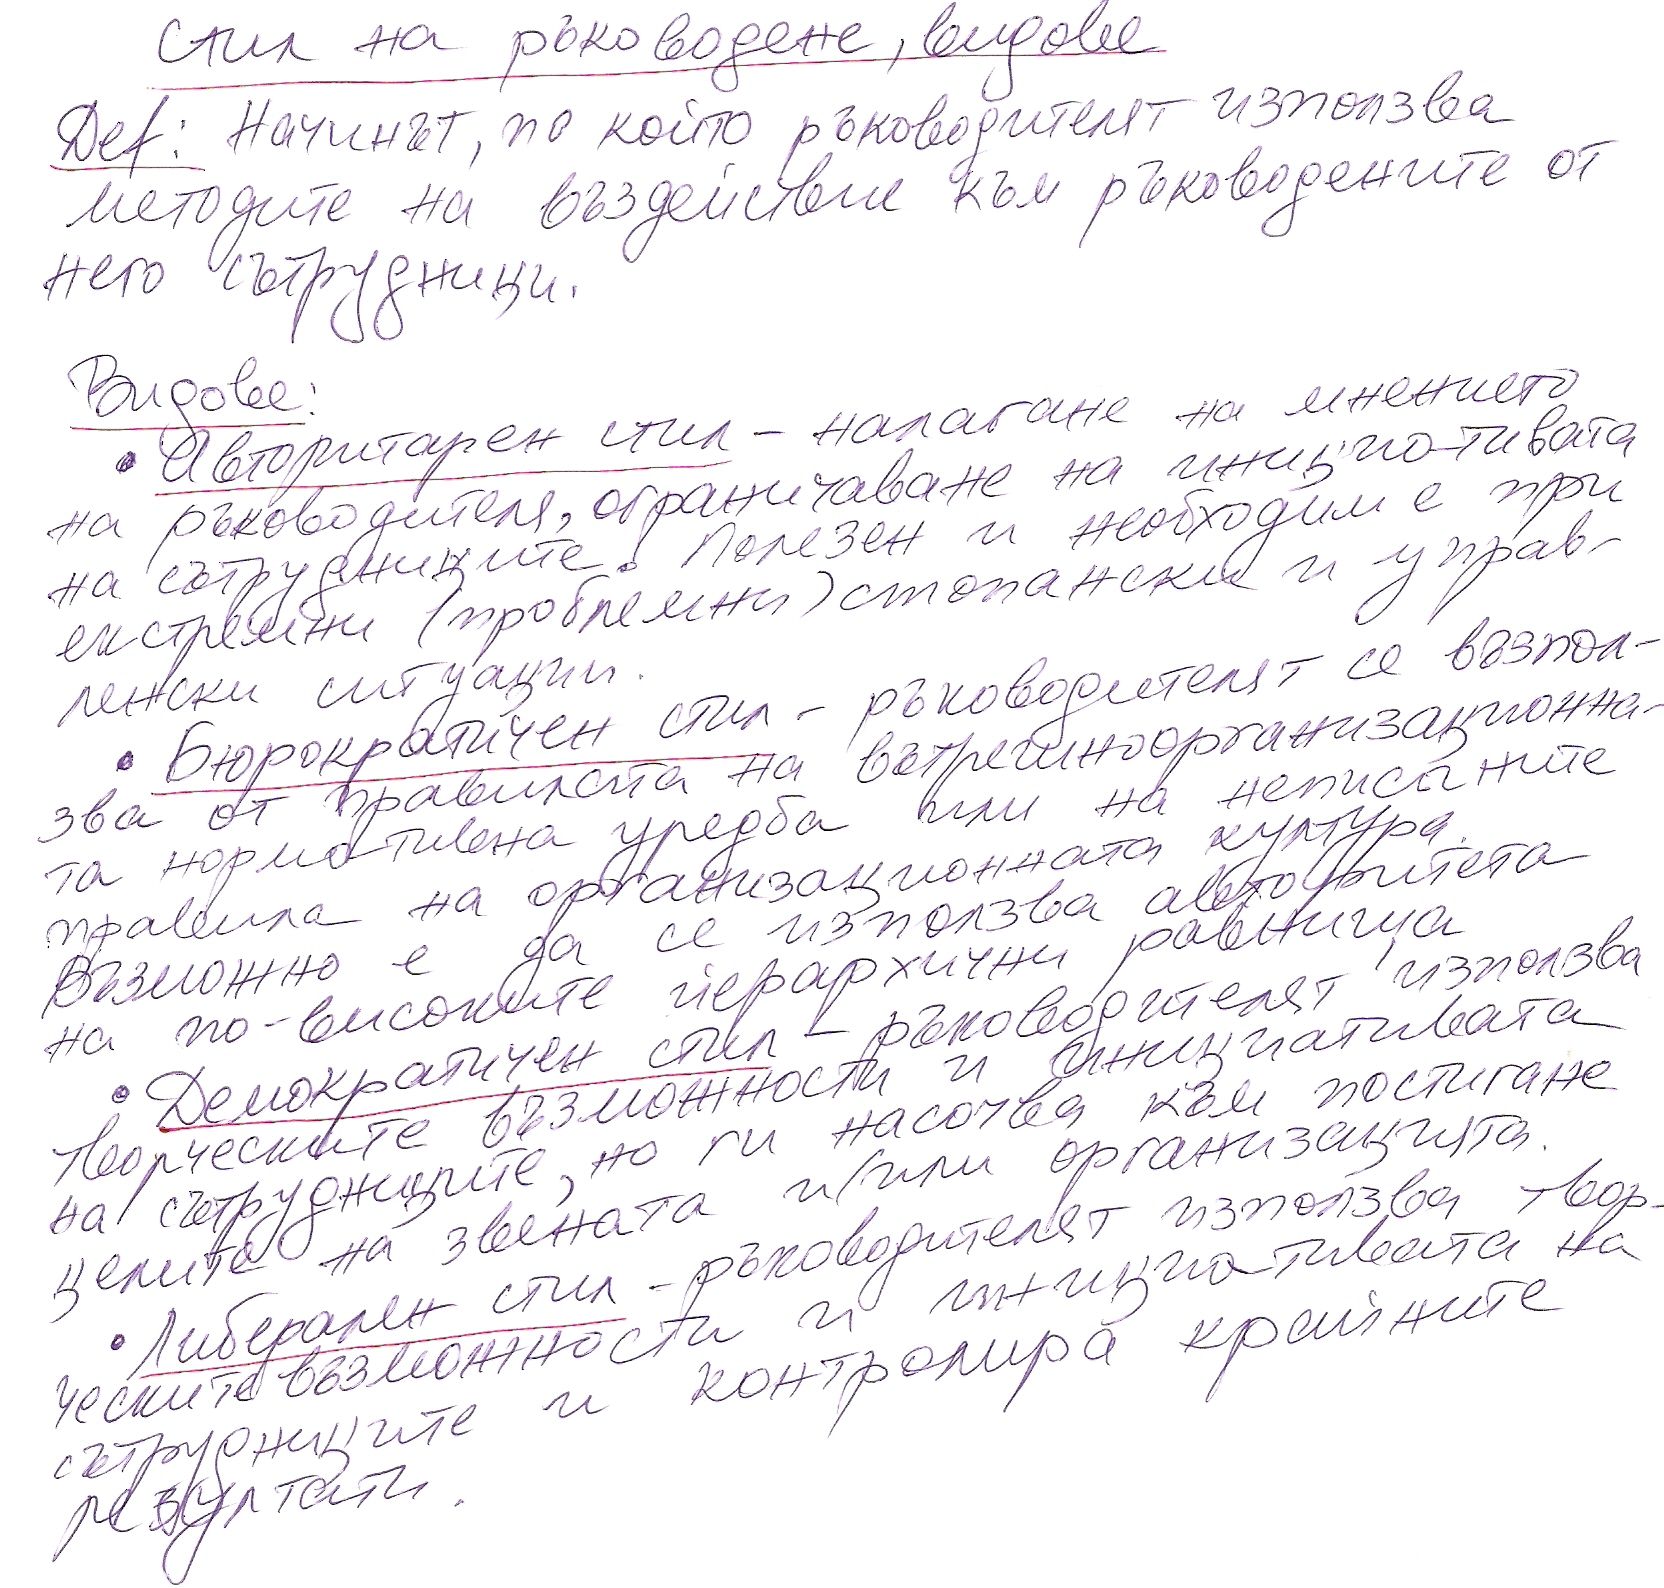 Стил на ръководене, видове
Def: Начинът, по който ръководителят използва
методите на въздействие към ръководените от
него сътрудници.
Видове:
• Авторитарен стил – налагане на мнението
на ръководителя, ограничаване на инициативата
на сътрудниците. Полезен и необходим е при
екстремни (проблемни) стопански и управ-
ленски ситуации.
• Бюрократичен стил – ръководителят се възпол-
зва от правилата на вътрешноорганизационна-
та нормативна уредба или на неписаните
правила на организационната култура.
Възможно е да се използва авторитета
на по-високите йерархични равнища
• Демократичен стил – ръководителят използва
творческите възможности и инициативата
на сътрудниците, но ги насочва към постигане
целите на звената и/или организацията.
• Либерален стил – ръководителят използва твор-
ческите възможности и инициативата на
сътрудниците и контролира крайните
резултати.